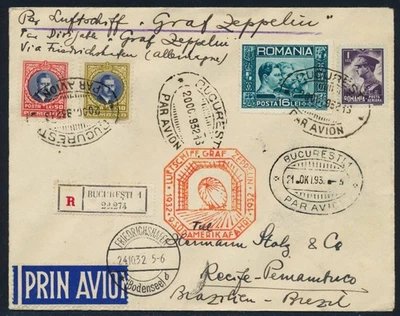 Per Luftschiff "Graf Zeppelin"
Par Dirijable "Graf Zeppelin"
Via Friedrichshafen (allemagne)
ROMANIA
POSTA 16 LEI
1
ROMANIA
BUCURESTI
PAR AVION
BUCURESTI
PAR AVION
BUCURESTI
PAR AVION
BUCURESTI 1
PAR AVION
R
BUCUREȘTI 1
29.274
LUFTSCHIFF GRAF ZEPPELIN
1932
SÜDAMERIKAF
FRIEDRICHSHAFEN
24.10.32 5-6
(Bodensee) d
PRIN AVION
Hermann Stolz & Co
Recife-Pernambuco
Brazilien - Brezil